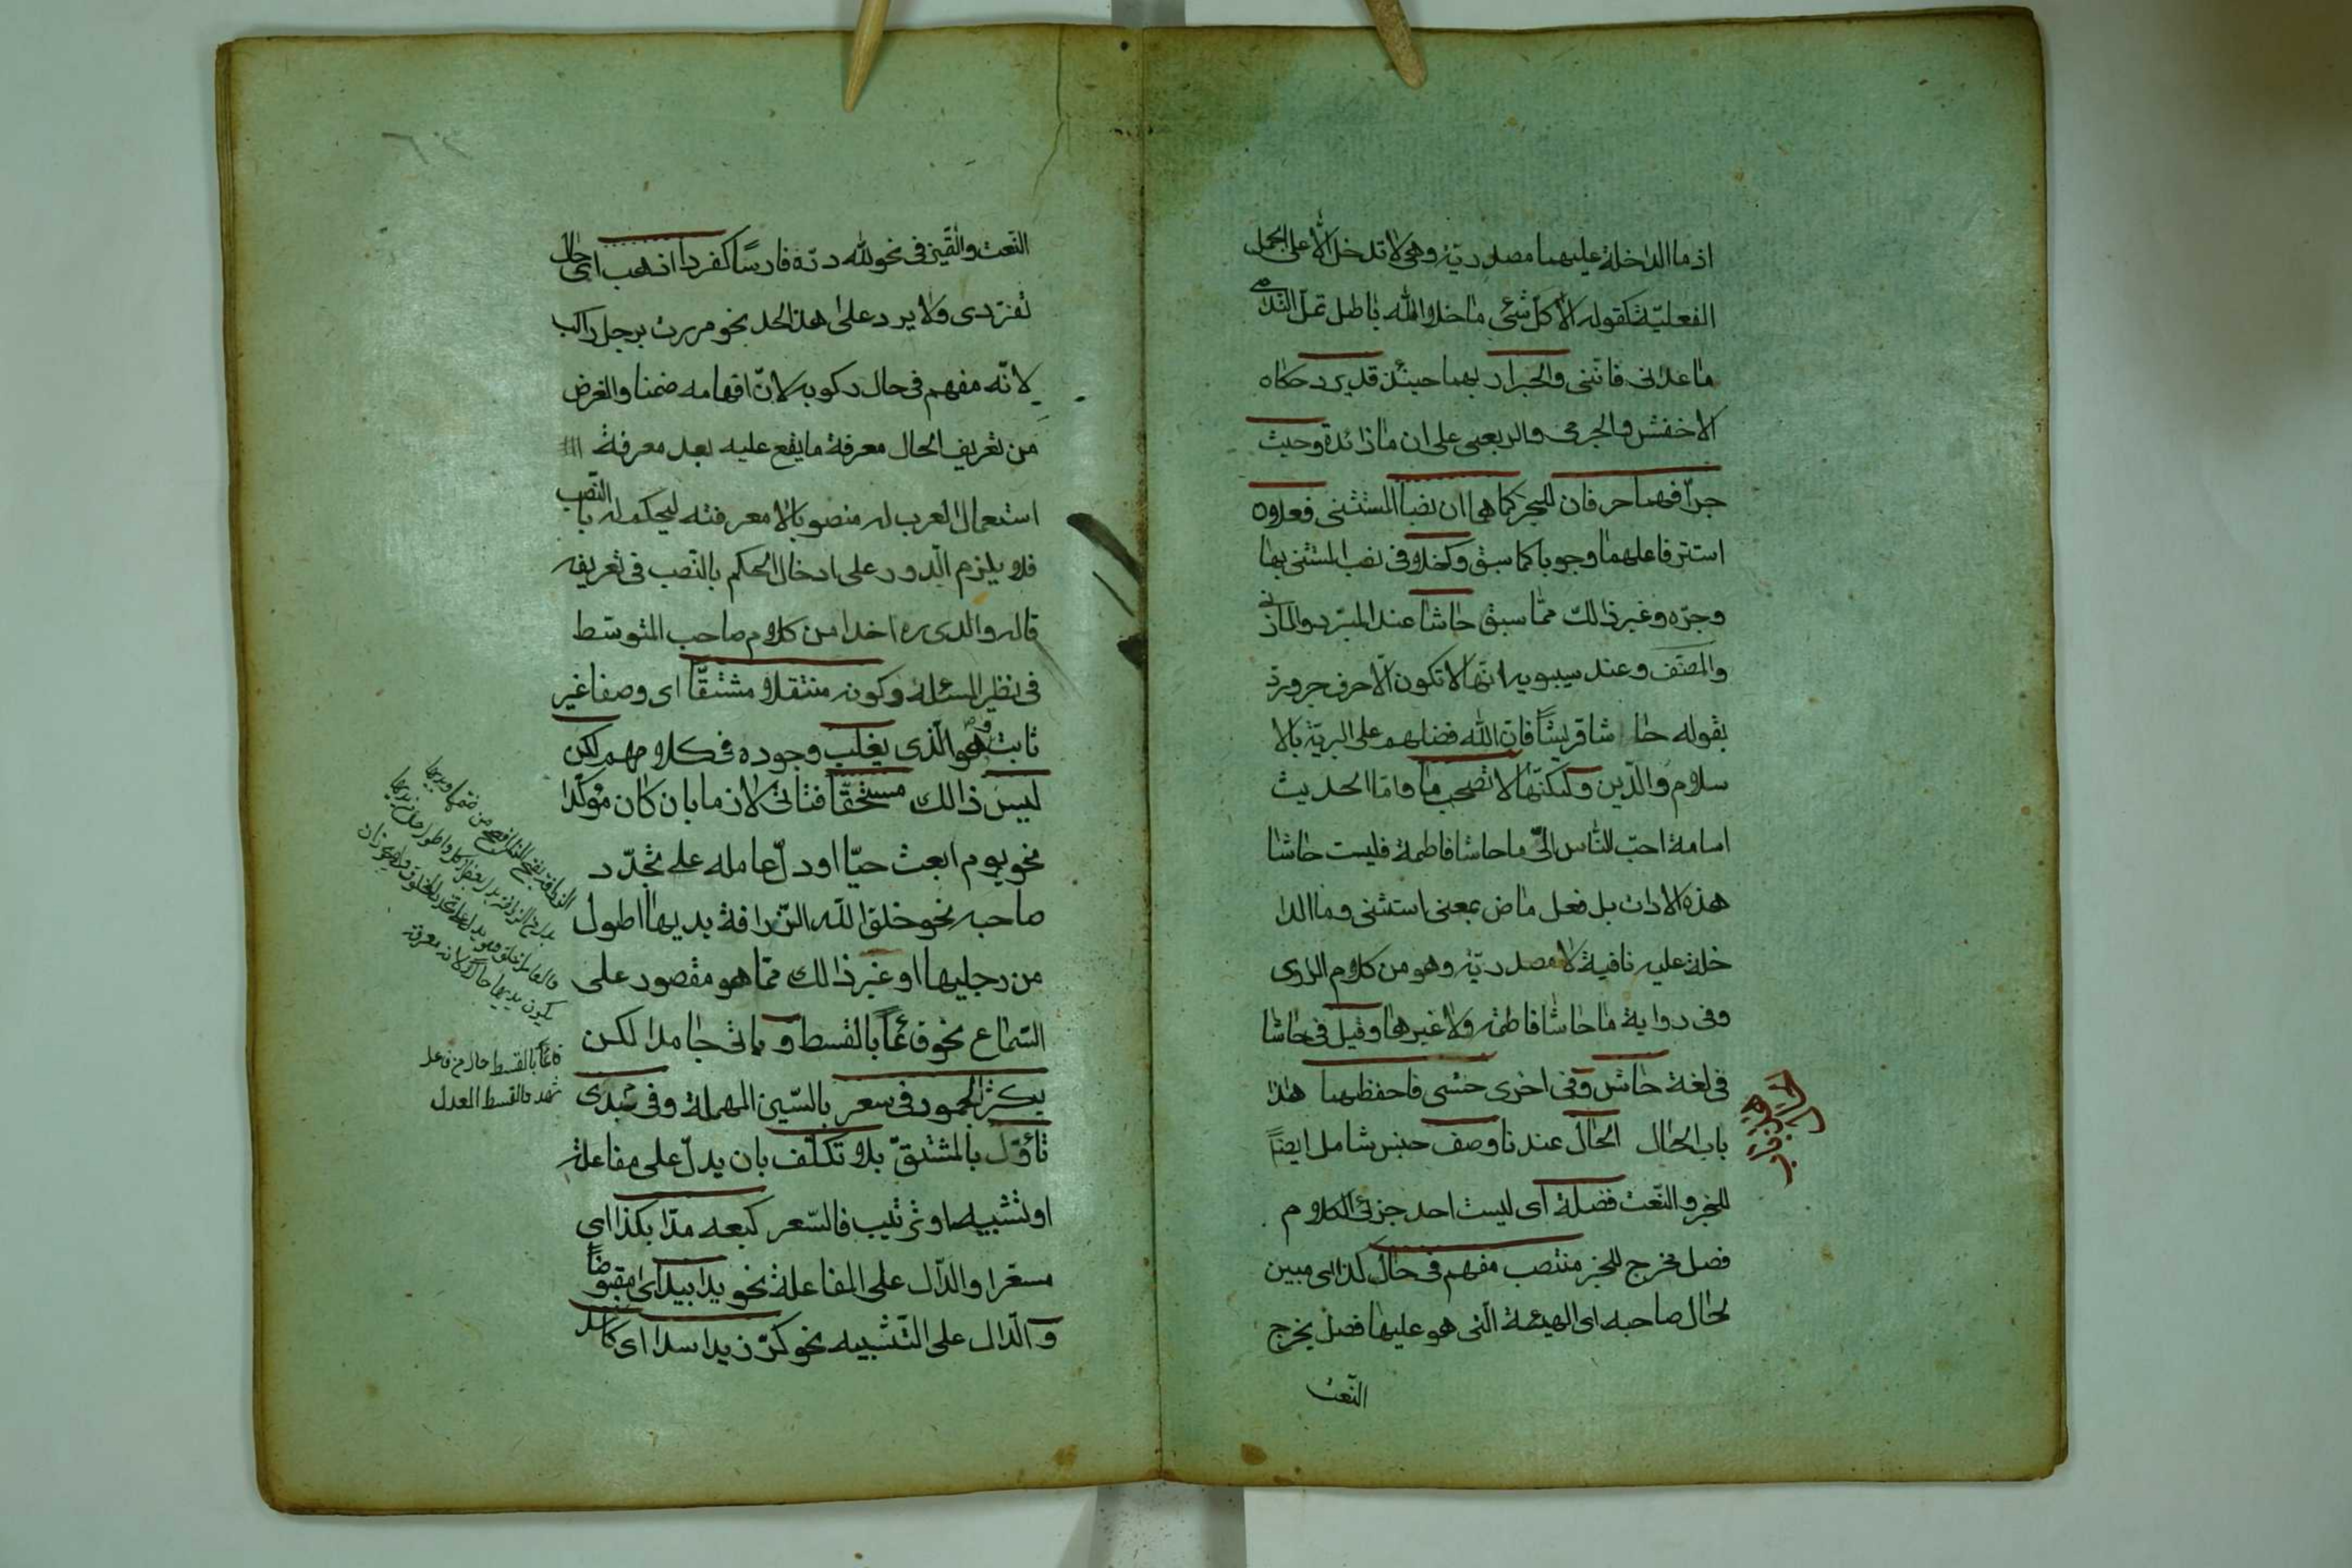 اذ ما الداخلة عليهما مصدريّة وهى لا تدخل الّا على الجمل
الفعليّة كقوله الا كلّ شئ ما خلا الله باطل تملّ الندامى
ما عدانى فاننى والجرا ر بهما حينئذ قد يرد حكاه
الاخفش والجرمى والربعى على ان ما زائدة وحيث
جرّا فهما حرفان للجر كما هما ان نصبا المستثنى فعلان
استتر فاعلهما وجوبا كما سبق وكخلا فى نصب المستثنى بها
وجرّه وغير ذالك ممّا سبق حاشا عند المبرّد والمازنى
والمصنّف وعند سيبويه انّها لا تكون الّا حرف جر ورد
بقوله حا شا قريشاً فان الله فضلهم على البريّة بالا
سلام والدّين ولكنّها لا تصحب ما وامّا الحديث
اسامة احبّ النّاس الىّ ما حاشا فاطمة فليست حاشا
هذه الادات بل فعل ماض بمعنى استثنى وما الدا
خلة عليه نافية لا مصدريّة وهو من كلام الراوى
وفى رواية ما حاشا فاطمة ولا غيرها وقيل فى حاشا
فى لغة حاش وفى اخرى حشى فاحفظهما هذا
باب الحال الحال عندنا وصف جنس شامل ايضاً
للخبر والنّعت فضلة اى ليست احد جزئى الكلام
فصل مخرج للخبر منتصب مفهم فى حال كذا اى مبين
لحال صاحبه اى الهيئة الّتى هو عليها فصل يخرج
النّعت
النّعت والتّميز فى نحو لله درّه فارسًا كفردا اذهب اى حال
تفرّدى ولا يرد على هذا الحد نحو مررت برجل راكب
لانّه مفهم فى حال ركوبه لانّ افهامه ضمنا والغرض
من تعريف الحال معرفة ما يقع عليه بعد معرفة
استعمال العرب له منصوبا لا معرفته ليحكم له بالنّصب
فلا يلزم الّدور على ادخال الحكم بالنّصب فى تعريفه
قاله والدى ره اخذا من كلام صاحب المتوسّط
فى نظير المسئلة وكونه منتقلا مشتقّا اى وصفا غير
ثابت هو الّذى يغلب وجوده فى كلامهم لكن
ليس ذالك مستحقّا فتاتى لازما بان كان مؤكّدا
نحو يوم ابعث حيّا او دلّ عامله على تجدّد
صاحبه نحو خلق اللّه الزّرافة يديها اطول
من رجليها او غير ذالك ممّا هو مقصور على
السّماع نحو قائمًا بالقسط و ياتى جامدا لكن
يكثر الجمود فى سعر بالسّين المهملة وفى مبدى
تأوّل بالمشتقّ بلا تكلّف بان يدلّ على مفاعلة
او تشبيه او ترتيب فالسّعر كبعه مدّا بكذا اى
مسعّرا والدّال على المفاعلة نحو يدا بيد اى مقبوضاً
والّدال على التّشبيه نحو كرّ زيد اسدا اى كاسد
قائمًا بالقسط حال من فاعل
شهد والقسط العدل